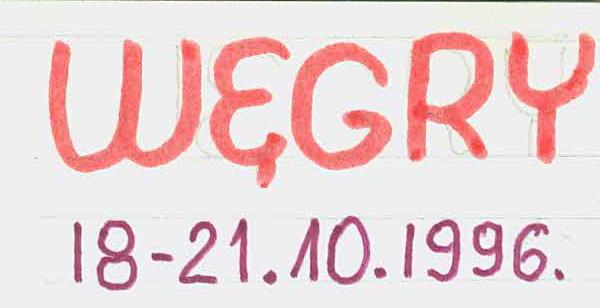 WĘGRY
18-21.10.1996.